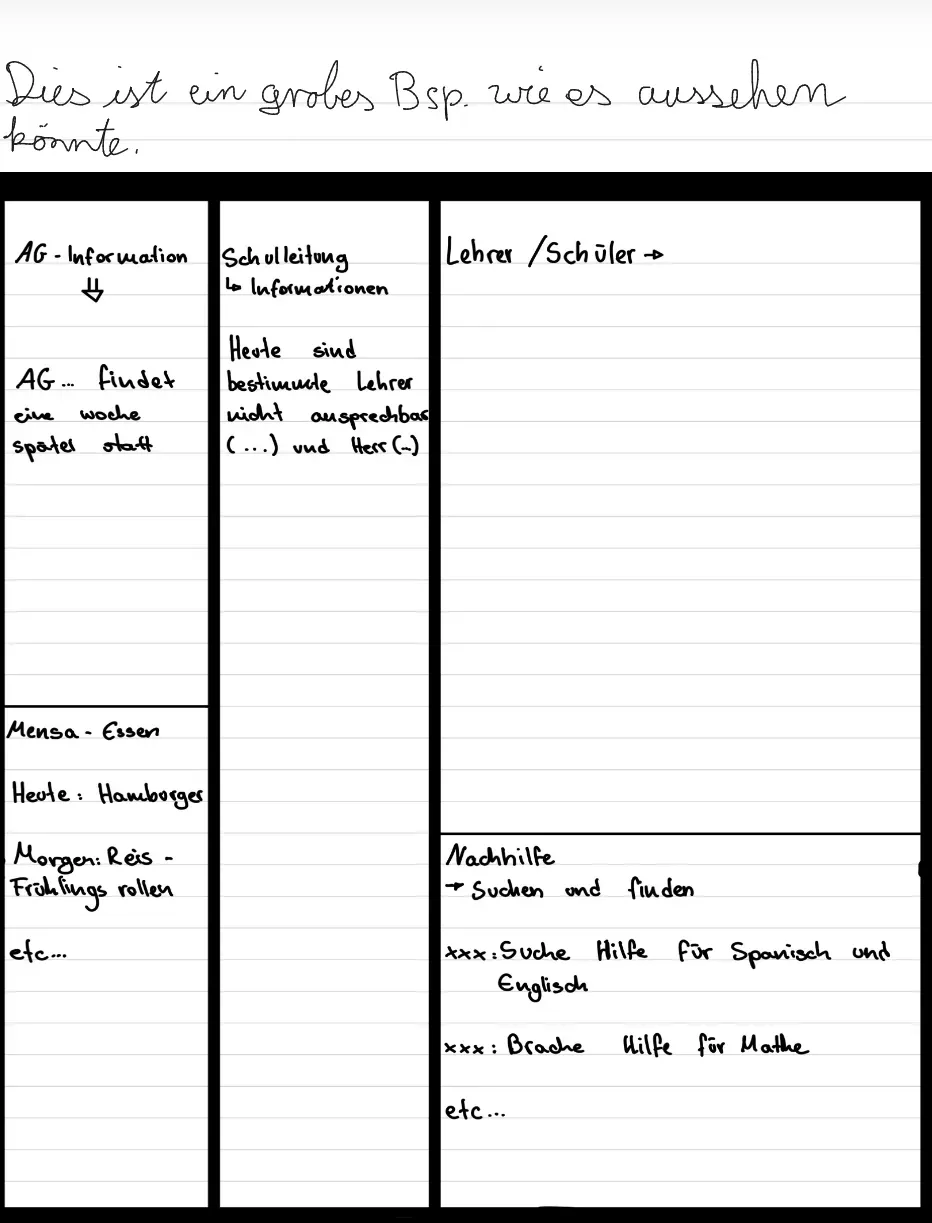 Dies ist ein grobes Bsp. wie es aussehen
könnte.
AG - Information
⇓
AG... findet
eine woche
später statt
Mensa - Essen
Heute : Hamburger
Morgen: Reis -
Frühlings rollen
etc...
Schulleitung
↳ Informationen
Heute sind
bestimmte Lehrer
nicht ansprechbar
(...) und Herr (...)
Lehrer / Schüler →
Nachhilfe
→ Suchen und finden
xxx: Suche Hilfe für Spanisch und
Englisch
xxx: Brache Hilfe für Mathe
etc...